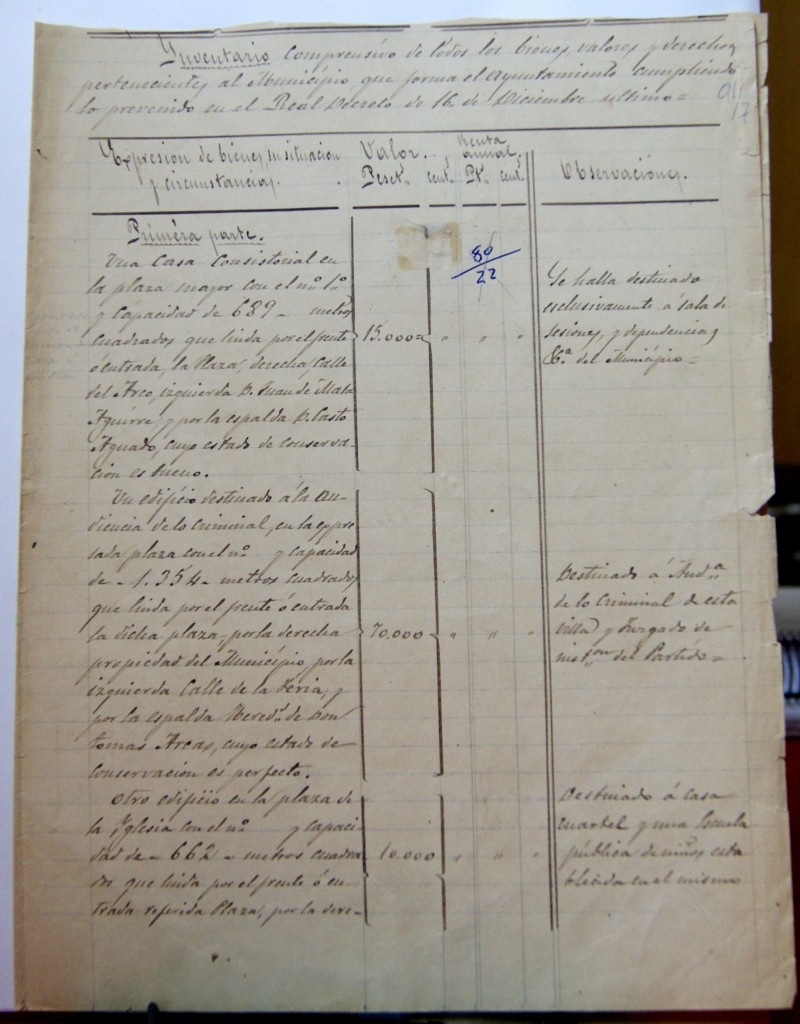 Inventario comprensivo de todos los bienes, valores y derechos
pertenecientes al Municipio, que forma el Ayuntamiento cumpliendo
lo prevenido en el Real Decreto de 16 de Diciembre ultimo=
Expresion de bienes, su situacion
y circunstancias.
Valor.
Peset.s cent.s
Renta
anual.
Pt.s cent.s
Observaciones.
Primera parte.
80
22
Una Casa Consistorial en
la plaza mayor con el n.º 1.º
y capacidad de 689 - metros
cuadrados que linda por el frente
ó entrada, la Plaza, derecha, Calle
del Arco, izquierda D. Juan de Mata
Aguirre, y por la espalda D. Casto
Aguado, cuyo estado de conserva-
cion es bueno.
15.000= " " "
Se halla destinado
esclusivamente á sala de
sesiones, y dependencias
&.a del Municipio=
Un edificio destinado á la Au-
diencia de lo criminal, en la espre
sada plaza con el n.º y capacidad
de - 1.354 - metros cuadrados
que linda por el frente ó entrada
la dicha plaza, por la derecha
propiedad del Municipio, por la
izquierda Calle de la Feria, y
por la espalda Hered.s de Don
Tomas Arcas, cuyo estado de
conservacion es perfecto.
70.000 " " "
Destinado á Aud.a
de lo Criminal de esta
villa y Juzgado de
inst.on del Partido=
Otro edificio en la plaza de
la Yglesia con el n.º y capaci-
dad de - 662 - metros cuadra
dos que linda por el frente ó en-
trada referida Plaza, por la dere-
10.000 " " "
Destinado á casa
cuartel y una Escuela
pública de niños esta
blecida en el mismo